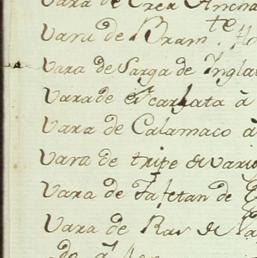 Vara de Crea Ancha
Vara de Bram.te
Vara de Sarga de Ingla
Vara de Escarlata à
Vara de Calamaco à
Vara de tripe de vario
Vara de Tafetan de
Vara de Ras de